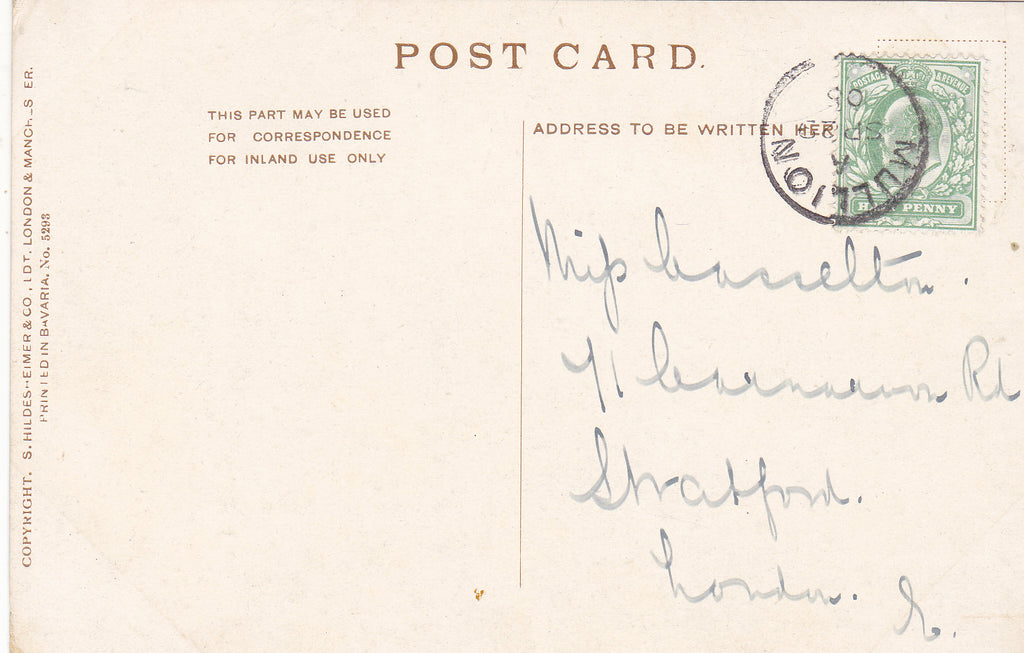 POST CARD.
THIS PART MAY BE USED
FOR CORRESPONDENCE
FOR INLAND USE ONLY
ADDRESS TO BE WRITTEN HER
POSTAGE & REVENUE
HALF PENNY
MULLION
SP 22
08
Miss Casselton.
71 Carnarvon Rd
Stratford.
London. E.
COPYRIGHT. S. HILDESHEIMER & CO., LDT. LONDON & MANCHESTER.
PRINTED IN BAVARIA. No. 5293